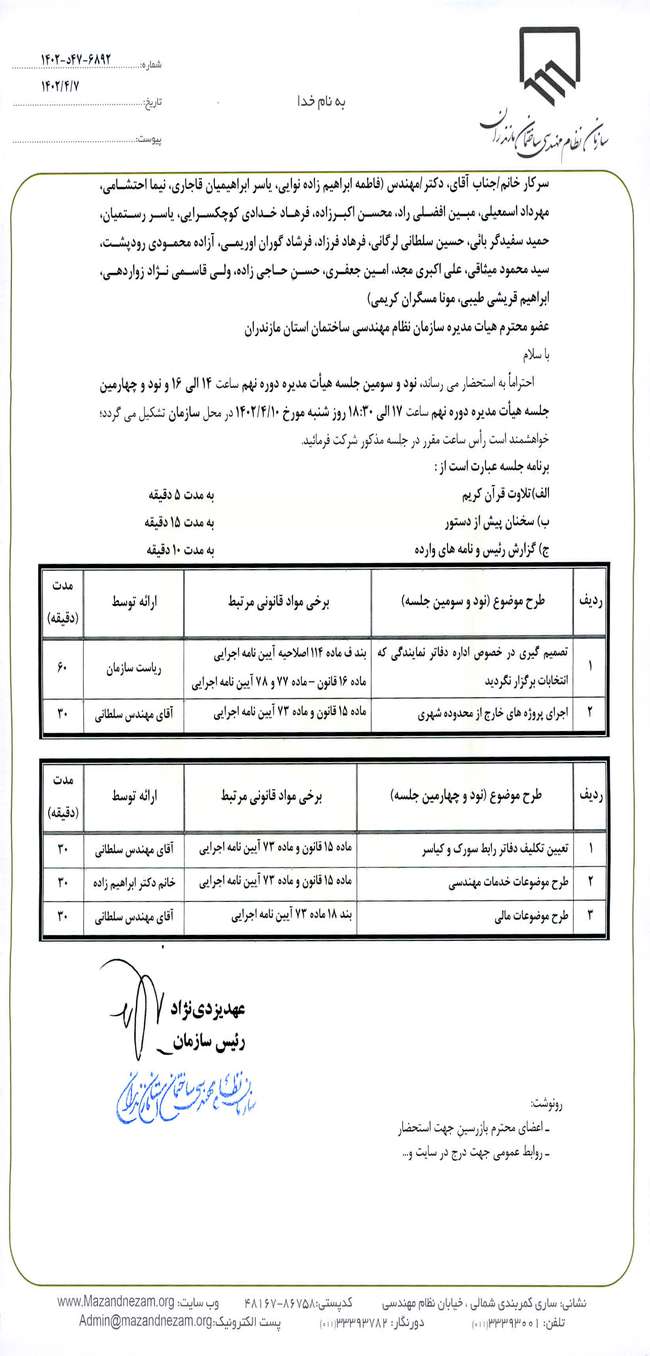 سازمان نظام مهندسی ساختمان مازندران
به نام خدا
شماره: ۶۸۹۲-۴۷د-۱۴۰۲
تاریخ: ۱۴۰۲/۴/۷
پیوست:
سرکار خانم/جناب آقای، دکتر/مهندس (فاطمه ابراهیم زاده نوایی، یاسر ابراهیمیان قاجاری، نیما احتشامی،
مهرداد اسمعیلی، مبین افضلی راد، محسن اکبرزاده، فرهاد خدادی کوچکسرایی، یاسر رستمیان،
حمید سفیدگر بائی، حسین سلطانی لرگانی، فرهاد فرزاد، فرشاد گوران اوریمی، آزاده محمودی رودپشت،
سید محمود میثاقی، علی اکبری مجد، امین جعفری، حسن حاجی زاده، ولی قاسمی نژاد زواردهی،
ابراهیم قریشی طیبی، مونا مسگران کریمی)
عضو محترم هیات مدیره سازمان نظام مهندسی ساختمان استان مازندران
با سلام
احتراماً به استحضار می رساند، نود و سومین جلسه هیأت مدیره دوره نهم ساعت ۱۴ الی ۱۶ و نود و چهارمین
جلسه هیأت مدیره دوره نهم ساعت ۱۷ الی ۱۸:۳۰ روز شنبه مورخ ۱۴۰۲/۴/۱۰ در محل سازمان تشکیل می گردد؛
خواهشمند است رأس ساعت مقرر در جلسه مذکور شرکت فرمائید.
برنامه جلسه عبارت است از :
الف)تلاوت قرآن کریم به مدت ۵ دقیقه
ب) سخنان پیش از دستور به مدت ۱۵ دقیقه
ج) گزارش رئیس و نامه های وارده به مدت ۱۰ دقیقه
ردیف طرح موضوع (نود و سومین جلسه) برخی مواد قانونی مرتبط ارائه توسط مدت (دقیقه)
۱ تصمیم گیری در خصوص اداره دفاتر نمایندگی که بند ف ماده ۱۱۴ اصلاحیه آیین نامه اجرایی ریاست سازمان ۶۰
انتخابات برگزار نگردید ماده ۱۶ قانون – ماده ۷۷ و ۷۸ آیین نامه اجرایی
۲ اجرای پروژه های خارج از محدوده شهری ماده ۱۵ قانون و ماده ۷۳ آیین نامه اجرایی آقای مهندس سلطانی ۳۰
ردیف طرح موضوع (نود و چهارمین جلسه) برخی مواد قانونی مرتبط ارائه توسط مدت (دقیقه)
۱ تعیین تکلیف دفاتر رابط سورک و کیاسر ماده ۱۵ قانون و ماده ۷۳ آیین نامه اجرایی آقای مهندس سلطانی ۳۰
۲ طرح موضوعات خدمات مهندسی ماده ۱۵ قانون و ماده ۷۳ آیین نامه اجرایی خانم دکتر ابراهیم زاده ۳۰
۳ طرح موضوعات مالی بند ۱۸ ماده ۷۳ آیین نامه اجرایی آقای مهندس سلطانی ۳۰
عهدیزدی‌نژاد
رئیس سازمان
سازمان نظام مهندسی ساختمان استان مازندران
رونوشت:
ـ اعضای محترم بازرسین جهت استحضار
ـ روابط عمومی جهت درج در سایت و...
نشانی: ساری کمربندی شمالی ، خیابان نظام مهندسی کدپستی: ۸۶۷۵۸-۴۸۱۶۷ وب سایت: www.Mazandnezam.org
تلفن: ۳۳۳۹۳۰۰۱(۰۱۱) دورنگار: ۳۳۳۹۳۷۸۲(۰۱۱) پست الکترونیک:Admin@mazandnezam.org